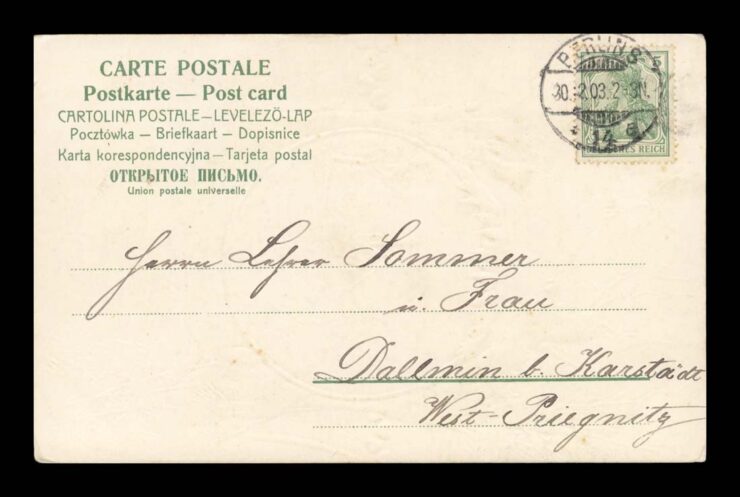 CARTE POSTALE
Postkarte — Post card
CARTOLINA POSTALE – LEVELEZÖ-LAP
Pocztówka – Briefkaart – Dopisnice
Karta korespondencyjna – Tarjeta postal
ОТКРЫТОЕ ПИСЬМО.
Union postale universelle
BERLIN S
5
14
REICH
Herrn Lehrer Sommer
u. Frau
Dallmin b. Karstädt
West-Priegnitz